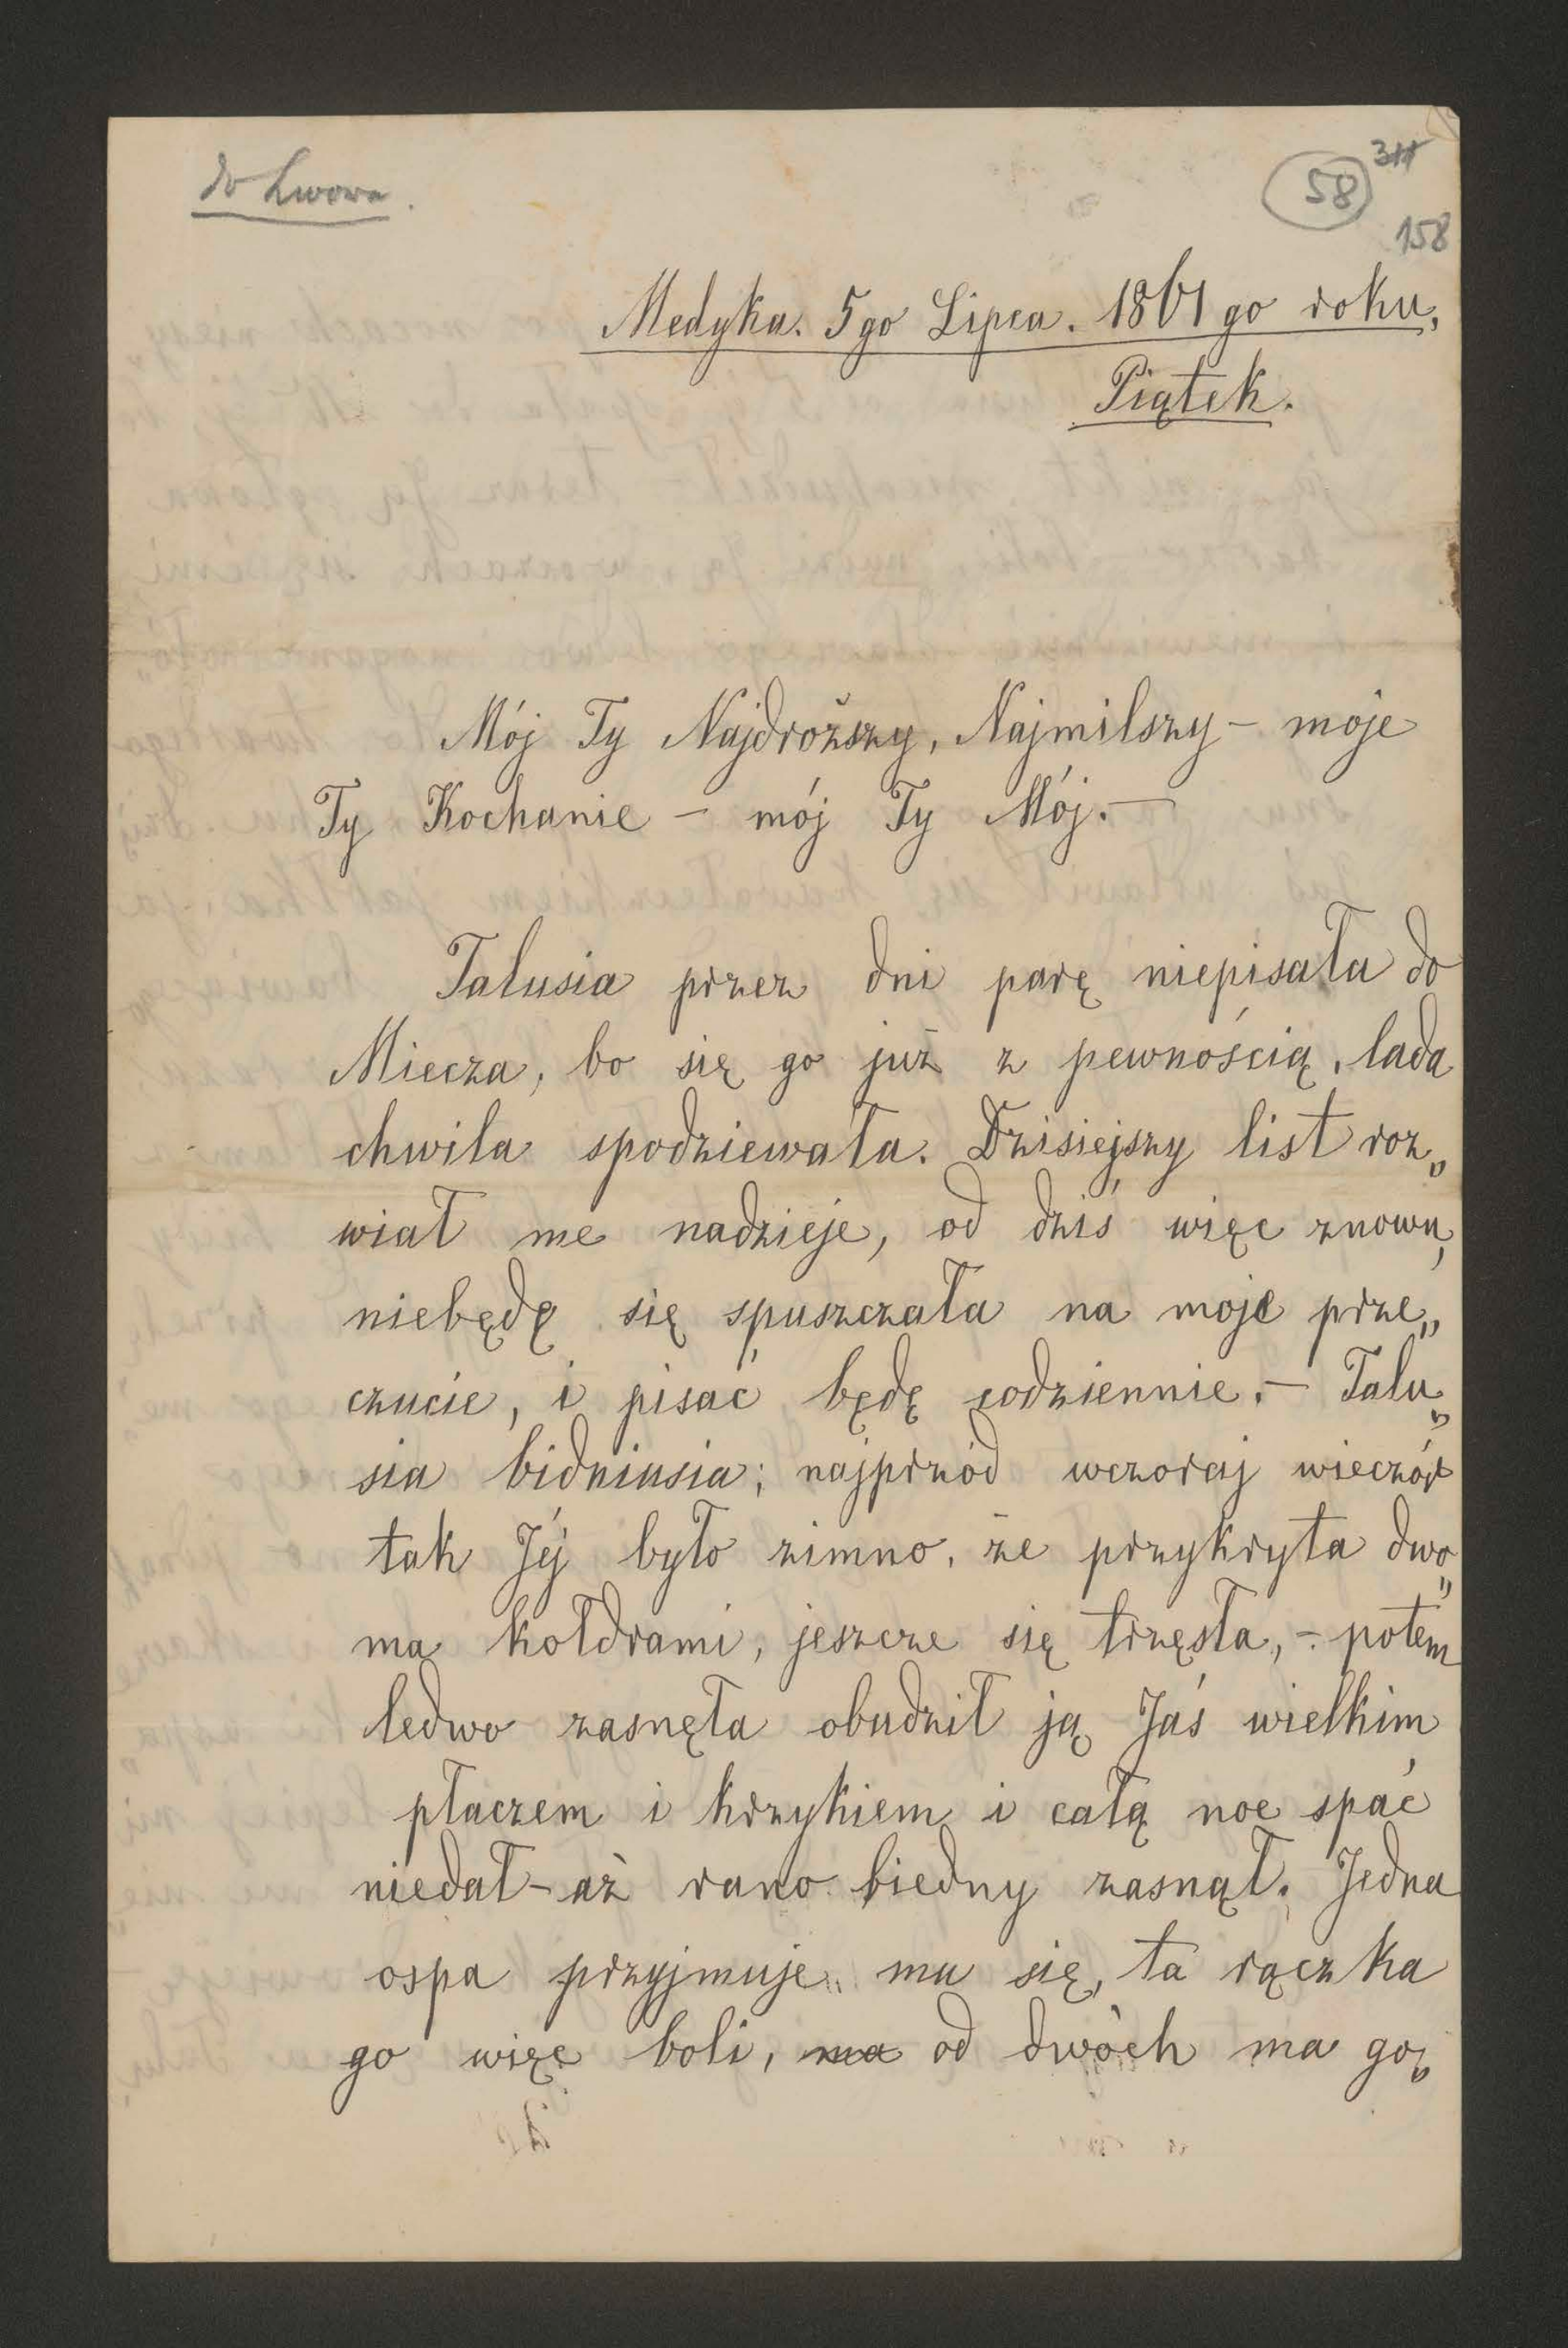 do Lwowa.
58
311
158
Medyka. 5go Lipca. 1861go roku.
Piątek.
Mój Ty Najdroższy, Najmilszy – moje
Ty Kochanie – mój Ty Mój. –
Talusia przez dni parę niepisała do
Miecza, bo się go już z pewnością, lada
chwila spodziewała. Dzisiejszy list roz„
wiał me nadzieje, od dziś więc znowu,
niebędę się spuszczała na moje prze„
czucie, i pisać będę codziennie. – Talu„
sia bidniusia; najprzód wczoraj wieczór
tak Jéj było zimno, że przykryta dwo„
ma kołdrami, jeszcze się trzęsła, – potem
ledwo zasnęła obudził ją Jaś wielkim
płaczem i krzykiem i całą noc spać
niedał – aż rano biedny zasnął. Jedna
ospa przyjmuje mu się, ta rączka
go więc boli, ma od dwóch ma go„